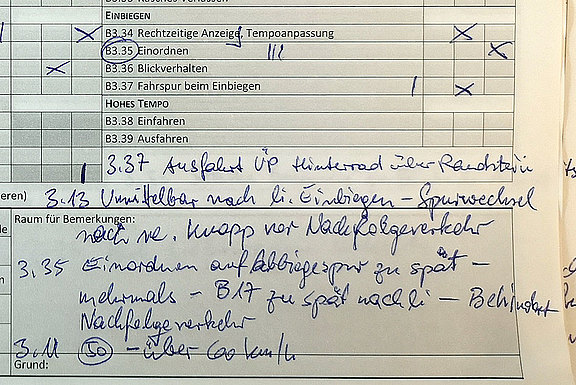 EINBIEGEN
B3.34 Rechtzeitige Anzeige, Tempoanpassung
B3.35 Einordnen
B3.36 Blickverhalten
B3.37 Fahrspur beim Einbiegen
HOHES TEMPO
B3.38 Einfahren
B3.39 Ausfahren
3.37 Ausfahrt ÜP Hinterrad über Randstein
eren) 3.13 Unmittelbar nach li. Einbiegen - Spurwechsel
Raum für Bemerkungen:
nach re. knapp vor Nachfolgeverkehr
3.35 Einordnen auf Abbiegespur zu spät -
mehrmals - B17 zu spät nach li - Behindert
Nachfolgeverkehr
3.11 50 - über 60 km/h
Grund: